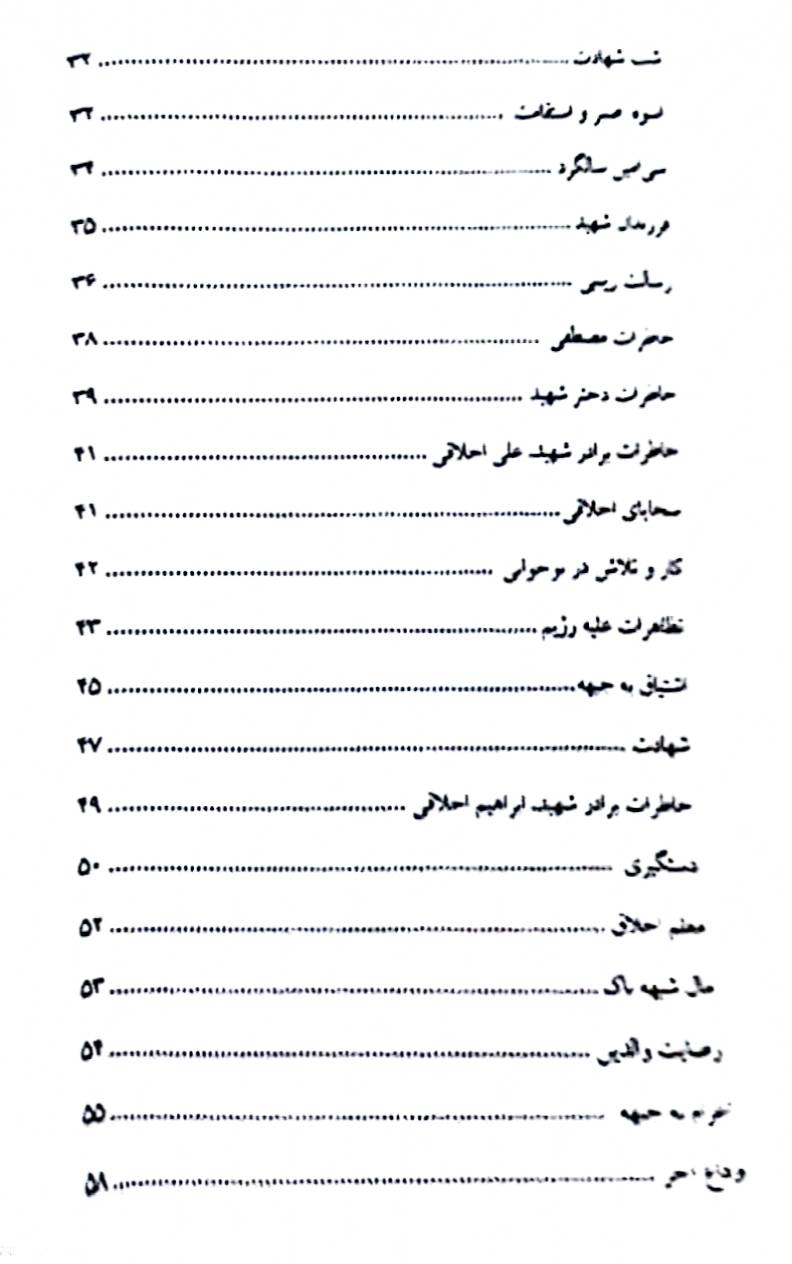 شب شهادت ........ ۳۲
اسوه صبر و استقامت ........ ۳۲
سالگرد ........ ۳۴
فرزندان شهید ........ ۳۵
رسالت زینبی ........ ۳۶
مصطفی ........ ۳۸
خاطرات دختر شهید ........ ۳۹
خاطرات برادر شهید علی اخلاقی ........ ۴۱
سجایای اخلاقی ........ ۴۱
کار و تلاش در نوجوانی ........ ۴۲
تظاهرات علیه رژیم ........ ۴۳
اشتیاق به جبهه ........ ۴۵
شهادت ........ ۴۷
خاطرات برادر شهید ابراهیم اخلاقی ........ ۴۹
دستگیری ........ ۵۰
معلم اخلاق ........ ۵۲
مال شبهه ناک ........ ۵۳
رضایت والدین ........ ۵۴
اعزام به جبهه ........ ۵۵
وداع آخر ........ ۵۸